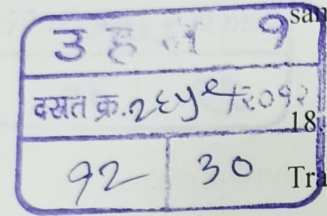 उ ह न १
दस्त क्र. २६५९/२०१२
१२ ३०
san
18.
Tra